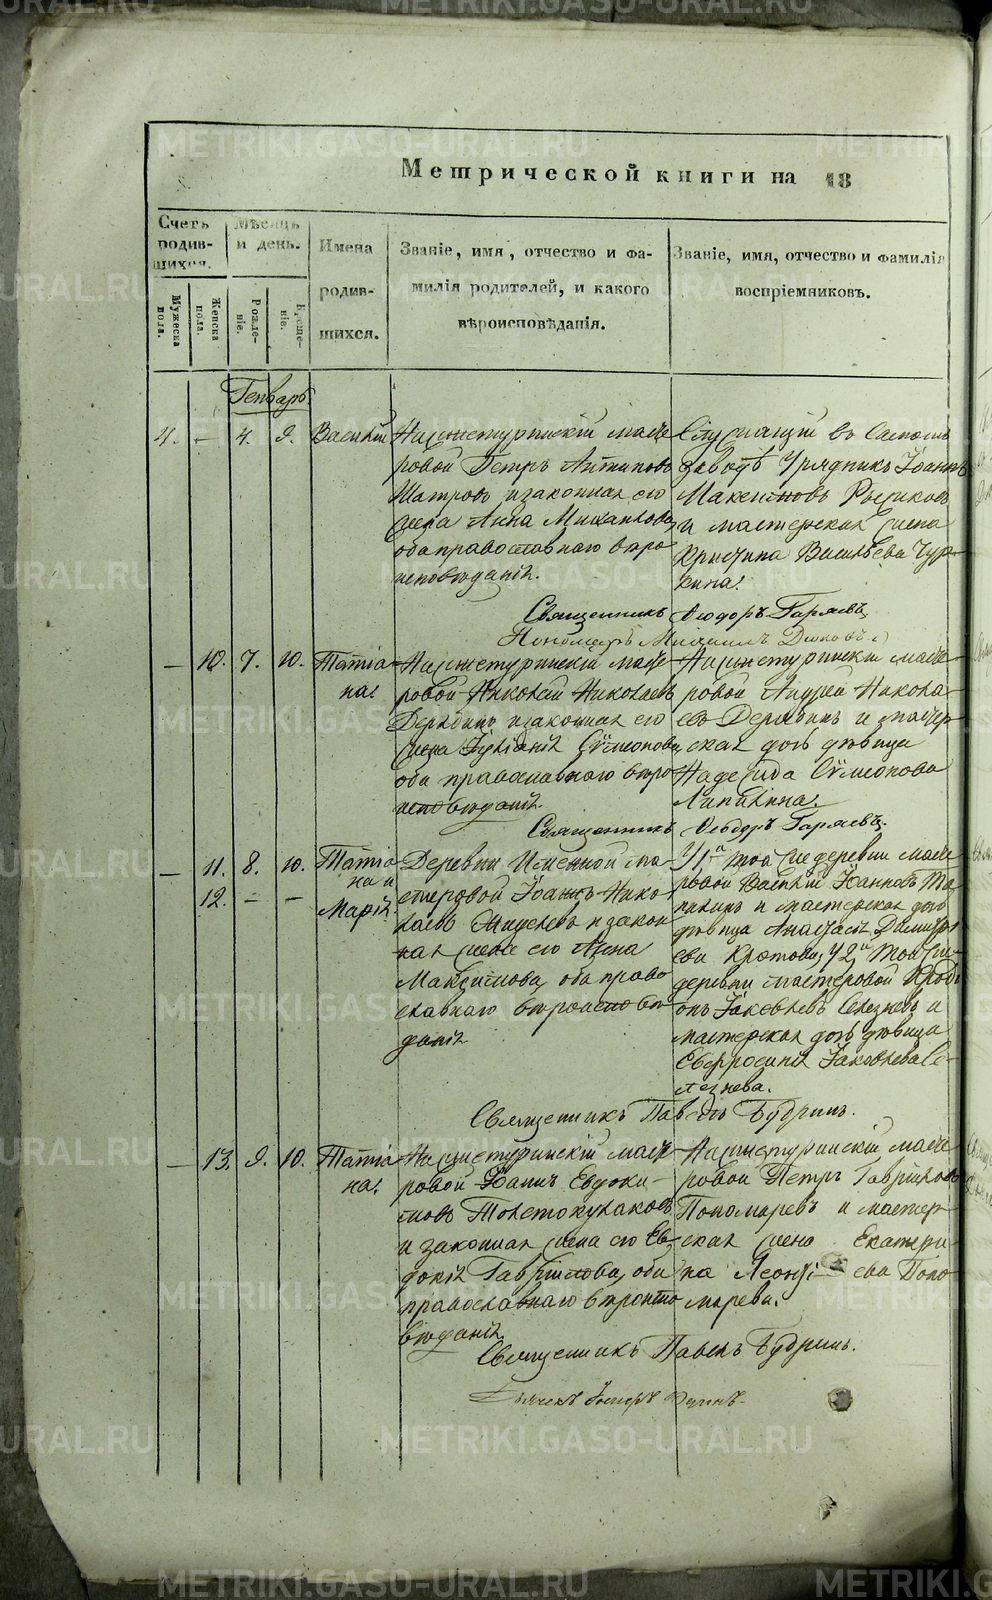 METRIKI.GASO-URAL.RU
Метрической книги на 18
Счетъ родив-шихся.
Мужеска пола.
Женска пола.
Мѣсяцъ и день.
Рожде-ніе.
Креще-ніе.
Имена
родив-
шихся.
Званіе, имя, отчество и фа-
милія родителей, и какого
вѣроисповѣданія.
Званіе, имя, отчество и фамилія
воспріемниковъ.
Генварь
4. – 4. 9. Василій
Нижнетуринскій масте
ровой Петръ Антиповъ
Шатровъ и законная его
жена Анна Михайлова,
оба православнаго вѣро
исповѣданія.
Служащій въ
заводѣ Урядникъ Іоаннъ
Максимовъ
и мастерская жена
Христина Васильева Чур
кина.
Священникъ Ѳеодоръ Гаряевъ.
Пономарь Михаилъ
– 10. 7. 10. Татіа
на.
Нижнетуринскій масте
ровой Николай Николаевъ
Дерябинъ и законная его
жена Іуліанія Сѵмеонова,
оба православнаго вѣро
исповѣданія.
Нижнетуринскій масте
ровой Андрей Никола-
евъ Дерябинъ и мастер-
ская дочь дѣвица
Надежда Сѵмеонова
Липихина.
Священникъ Ѳеодоръ Гаряевъ.
– 11. 8. 10. Татіа
на и
12. – – Марія.
Деревни Именной ма
стеровой Іоаннъ Нико
лаевъ и закон
ная жена его Анна
Максимова, оба право
славнаго вѣроисповѣ
данія
У 1й тоя же деревни масте
ровой Василій Іоанновъ
и мастерская дочь
дѣвица Анастасія Димитрі
ева Кротова, У 2й тоя же
деревни мастеровой Ироді
онъ Іаковлевъ Селезневъ и
мастерская дочь дѣвица
Евфросинія Іаковлева Се-
лезнева.
Священникъ Павелъ Будринъ.
– 13. 9. 10. Татіа
на.
Нижнетуринскій масте
ровой Іоаннъ Евдоки-
мовъ Толстокулаковъ
и законная жена его Ев
докія Гавріилова, оба
православнаго вѣроиспо
вѣданія.
Нижнетуринскій масте
ровой Петръ Гавріиловъ
Пономаревъ и мастер-
ская жена Екатери
на Леонтіева Поно
марева.
Священникъ Павелъ Будринъ.